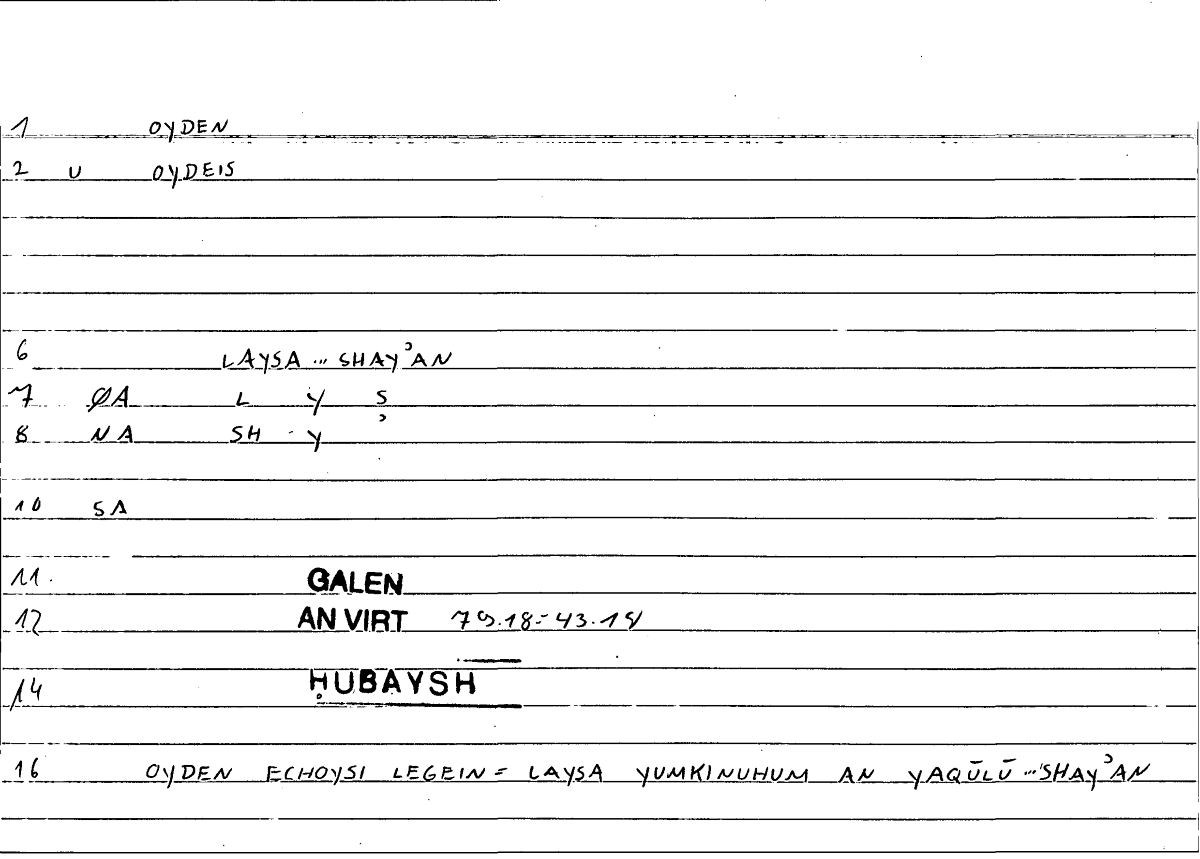 1 OYDEN
2 U OYDEIS
6 LAYSA ... SHAYʾAN
7 ØA L Y S
8 NA SH Y ʾ
10 SA
11. GALEN
12 AN VIRT 79.18 = 43.14
14 ḤUBAYSH
16 OYDEN ECHOYSI LEGEIN = LAYSA YUMKINUHUM AN YAQŪLŪ ... SHAYʾAN